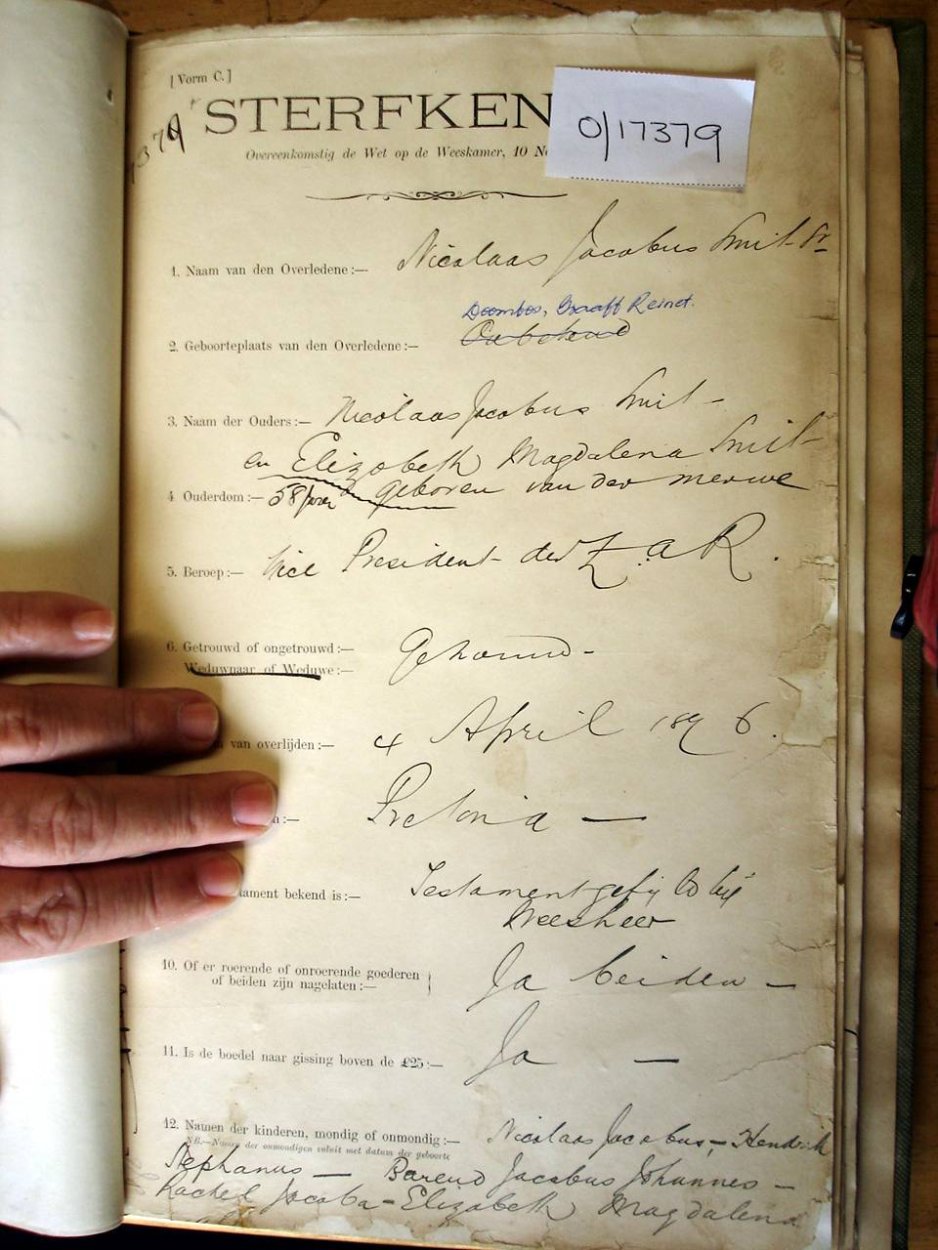 [Vorm C.]
0/17379
STERFKEN
Overeenkomstig de Wet op de Weeskamer, 10 No
1. Naam van den Overledene:— Nicolaas Jacobus Smit Sr
Doornbos, Graaff Reinet.
2. Geboorteplaats van den Overledene:— Onbekend
3. Naam der Ouders:— Nicolaas Jacobus Smit —
en Elizabeth Magdalena Smit
4 Ouderdom:— 58 jaar geboren van der Merwe
5. Beroep:— Vice President der Z.A.R.
6. Getrouwd of ongetrouwd:— Getrouwd —
Weduwnaar of Weduwe:—
van overlijden:— 4 April 1896.
:— Pretoria —
tament bekend is:— Testament bij
Weesheer
10. Of er roerende of onroerende goederen
of beiden zijn nagelaten:— Ja beiden —
11. Is de boedel naar gissing boven de £25:— Ja —
12. Namen der kinderen, mondig of onmondig:— Nicolaas Jacobus, — Hendrik
NB.—Namen der onmondigen voluit met datum der geboorte
Stephanus — Barend Jacobus Johannes —
Rachel Jacoba — Elizabeth Magdalena